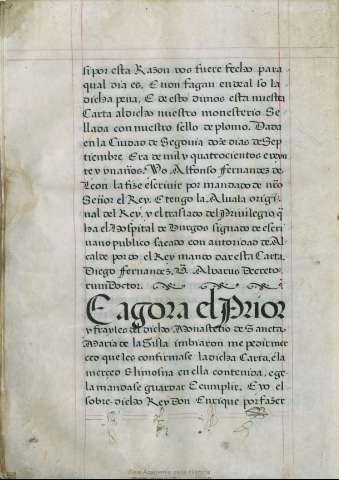 si por esta Razon vos fuere fecho para
qual dia es, E non fagan en de al so la
dicha pena, E de esto dimos esta nuestra
Carta al dicho nuestro monesterio Se
llada con nuestro sello de plomo, Dada
en la Ciudad de Segovia doze dias de Sep
tiembre Era de mil y quatrocientos e veyn
te y un años. Yo Alfonso Fernandes de
Leon la fize escrivir por mandado de nro
Señor el Rey. E tengo la Aluala origi
nal del Rey, y el traslado del Privilegio q
ha el Hospital de Burgos signado de escri
uano publico sacado con autoridad de Al
calde por do el Rey mando dar esta Carta,
Diego Fernandez, Br. Albarus Decreto
rum Doctor.
E agora el Prior
y frayles del dicho Monasterio de Sancta
Maria de la Sisla imbiaron me pedir mer
ced que les confirmase la dicha Carta, e la
merced e limosna en ella contenida, e ge
la mandase guardar e cumplir. E yo el
sobre dicho Rey Don Enrique por fazer